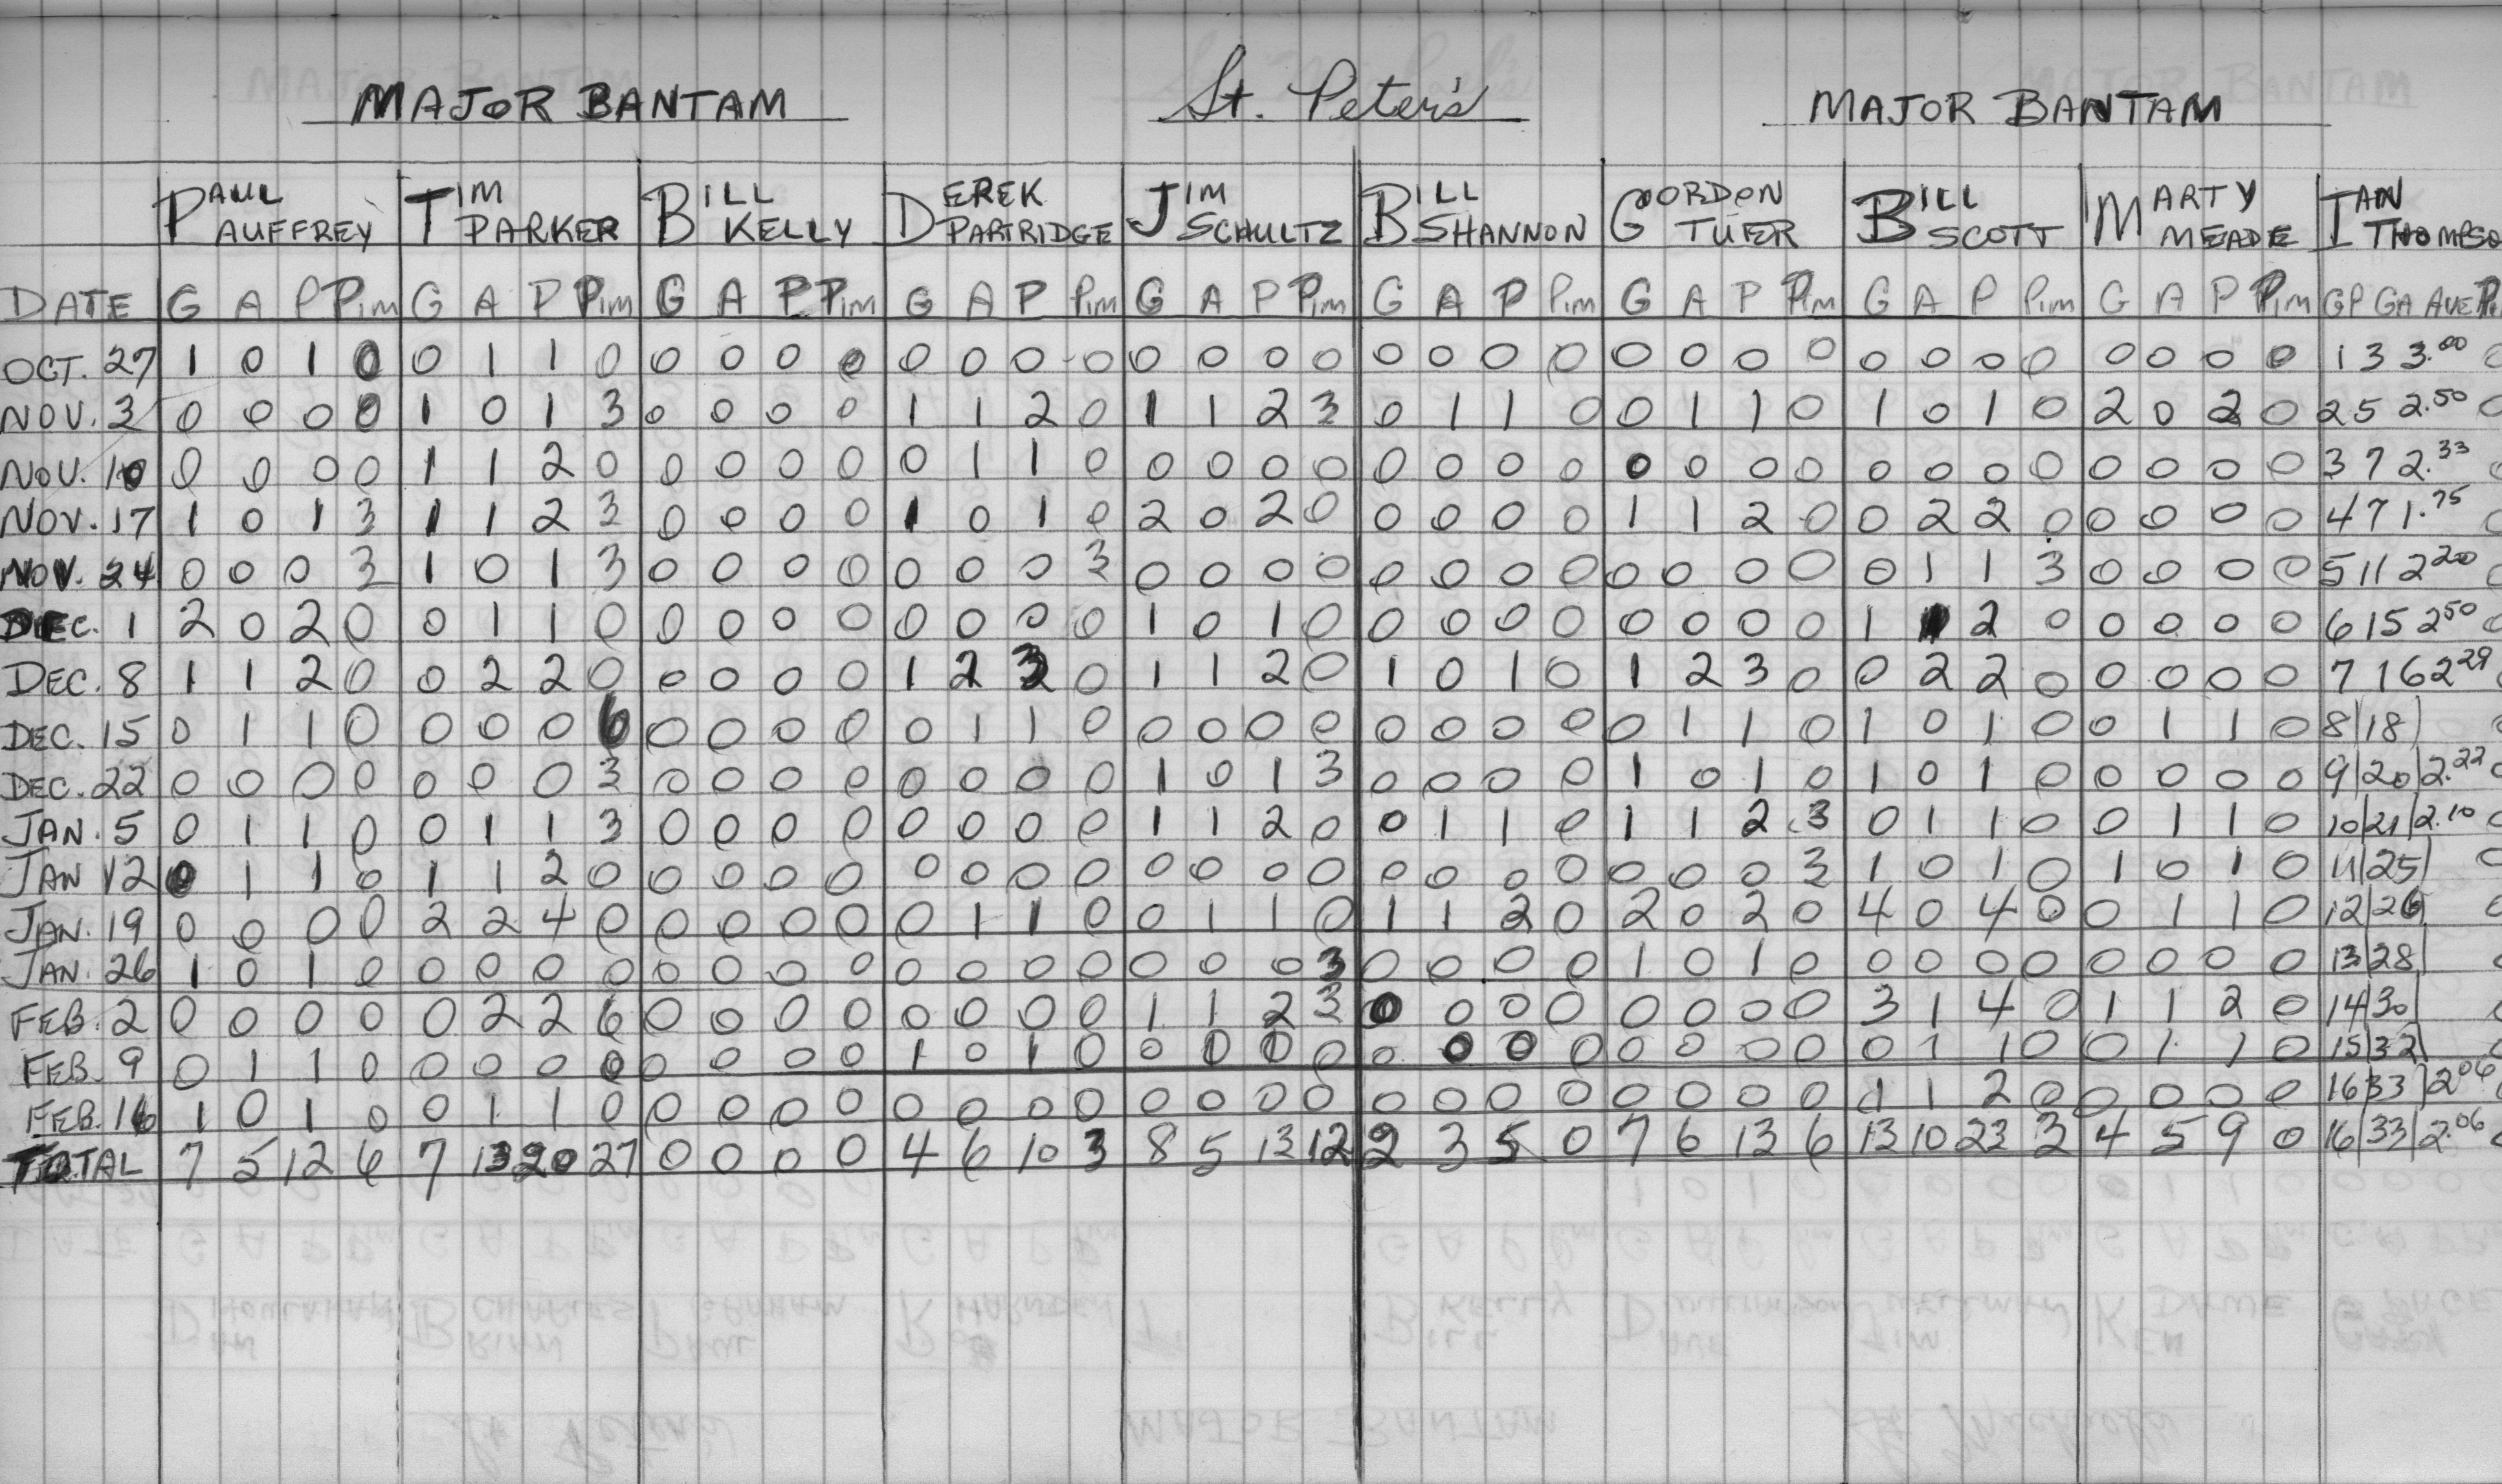 MAJOR BANTAM St. Peter's MAJOR BANTAM
PAUL AUFFREY TIM PARKER BILL KELLY DEREK PARTRIDGE JIM SCHULTZ BILL SHANNON GORDON TUER BILL SCOTT MARTY MEADE IAN THOMPSO
DATE G A P PIM G A P PIM G A P PIM G A P PIM G A P PIM G A P PIM G A P PIM G A P PIM G A P PIM GP GA AVE
OCT. 27 1 0 1 0 0 1 1 0 0 0 0 0 0 0 0 0 0 0 0 0 0 0 0 0 0 0 0 0 0 0 0 0 0 0 0 0 1 3 3.00 0
NOV. 3 0 0 0 0 1 0 1 3 0 0 0 0 1 1 2 0 1 1 2 3 0 1 1 0 0 1 1 0 1 0 1 0 2 0 2 0 2 5 2.50 0
NOV. 10 0 0 0 0 1 1 2 0 0 0 0 0 0 1 1 0 0 0 0 0 0 0 0 0 0 0 0 0 0 0 0 0 0 0 0 0 3 7 2.33 0
NOV. 17 1 0 1 3 1 1 2 3 0 0 0 0 1 0 1 0 2 0 2 0 0 0 0 0 1 1 2 0 0 2 2 0 0 0 0 0 4 7 1.75 0
NOV. 24 0 0 0 3 1 0 1 3 0 0 0 0 0 0 0 3 0 0 0 0 0 0 0 0 0 0 0 0 0 1 1 3 0 0 0 0 5 11 2 20 0
DEC. 1 2 0 2 0 0 1 1 0 0 0 0 0 0 0 0 0 1 0 1 0 0 0 0 0 0 0 0 0 1 1 2 0 0 0 0 0 6 15 2 50 0
DEC. 8 1 1 2 0 0 2 2 0 0 0 0 0 1 2 3 0 1 1 2 0 1 0 1 0 1 2 3 0 0 2 2 0 0 0 0 0 7 16 2 29 0
DEC. 15 0 1 1 0 0 0 0 6 0 0 0 0 0 1 1 0 0 0 0 0 0 0 0 0 0 1 1 0 1 0 1 0 0 1 1 0 8|18| 0
DEC. 22 0 0 0 0 0 0 0 3 0 0 0 0 0 0 0 0 1 0 1 3 0 0 0 0 1 0 1 0 1 0 1 0 0 0 0 0 9|20|2.22 0
JAN. 5 0 1 1 0 0 1 1 3 0 0 0 0 0 0 0 0 1 1 2 0 0 1 1 0 1 1 2 3 0 1 1 0 0 1 1 0 10|21|2.10 0
JAN 12 0 1 1 0 1 1 2 0 0 0 0 0 0 0 0 0 0 0 0 0 0 0 0 0 0 0 0 3 1 0 1 0 1 0 1 0 11|25| 0
JAN. 19 0 0 0 0 2 2 4 0 0 0 0 0 0 1 1 0 0 1 1 0 1 1 2 0 2 0 2 0 4 0 4 0 0 1 1 0 12|26| 0
JAN. 26 1 0 1 0 0 0 0 0 0 0 0 0 0 0 0 0 0 0 0 3 0 0 0 0 1 0 1 0 0 0 0 0 0 0 0 0 13|28| 0
FEB. 2 0 0 0 0 0 2 2 6 0 0 0 0 0 0 0 0 1 1 2 3 0 0 0 0 0 0 0 0 3 1 4 0 1 1 2 0 14|30| 0
FEB. 9 0 1 1 0 0 0 0 0 0 0 0 0 1 0 1 0 0 0 0 0 0 0 0 0 0 0 0 0 0 1 1 0 0 1 1 0 15|32| 0
FEB. 16 1 0 1 0 0 1 1 0 0 0 0 0 0 0 0 0 0 0 0 0 0 0 0 0 0 0 0 0 1 1 2 0 0 0 0 0 16|33|2.06 0
TOTAL 7 5 12 6 7 13 20 27 0 0 0 0 4 6 10 3 8 5 13 12 2 3 5 0 7 6 13 6 13 10 23 3 4 5 9 0 16|33|2.06 0